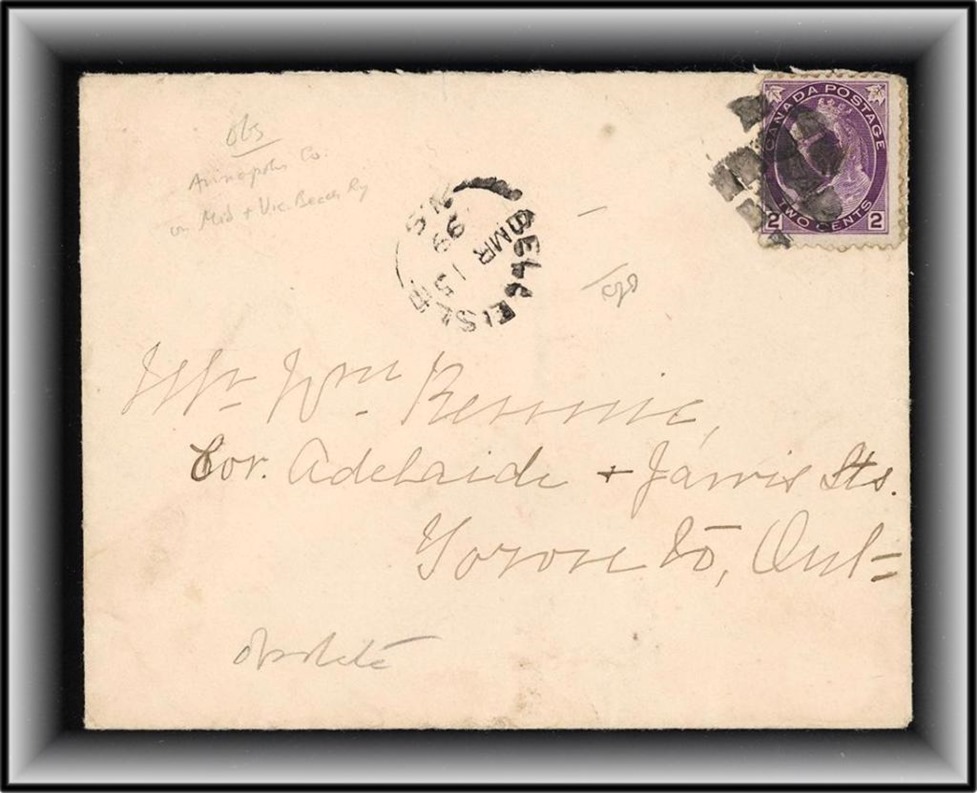 obs
Annapolis Co.
on Mid + Vic. Beach Ry
CANADA POSTAGE
2 TWO CENTS 2
BELLEISLE
MR 15
99
N.S
Mr Wm. Rennie,
Cor. Adelaide + Jarvis Sts.
Toronto, Ont-
obsolete